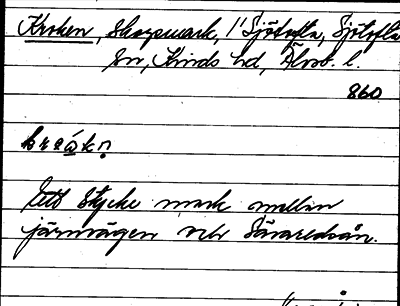 Kroken, Skogsmark, 1' Sjötofta, Sjötofta
sn, Kinds hd, Älvsb. l.
860
Ett stycke mark mellan
järnvägen och Såraredsån.